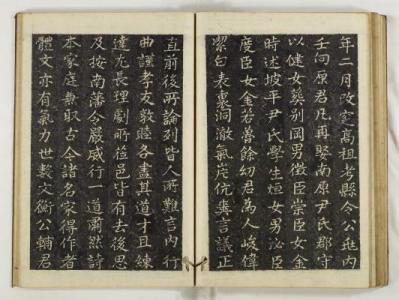 年二月改窆高祖考縣令公兆内
壬向原君凡再娶南原尹氏郡守
以健女葬別岡男徵臣崇臣女金
時述坡平尹氏學生烜女男泌臣
度臣女金若魯餘幼君爲人峻偉
潔白表裏洞澈氣岸伉爽言議正
直前後所論列皆人所難言内行
曲謹孝友敦睦各盡其道才且練
達尤長理劇所莅邑皆有去後思
及按南藩令嚴威行一道肅然詩
本家庭無取古今諸名家得作者
體文亦有氣力世穀文衡公輔君